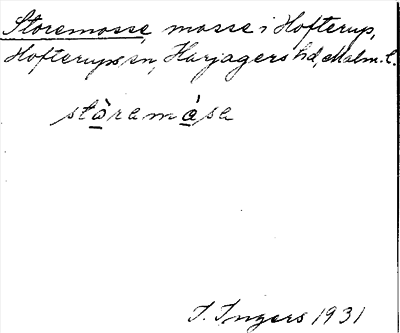 Storemosse, mosse i Hofterup,
Hofterups sn, Harjagers hd, Malm. l.
stòramòsa
I. Ingers 1931